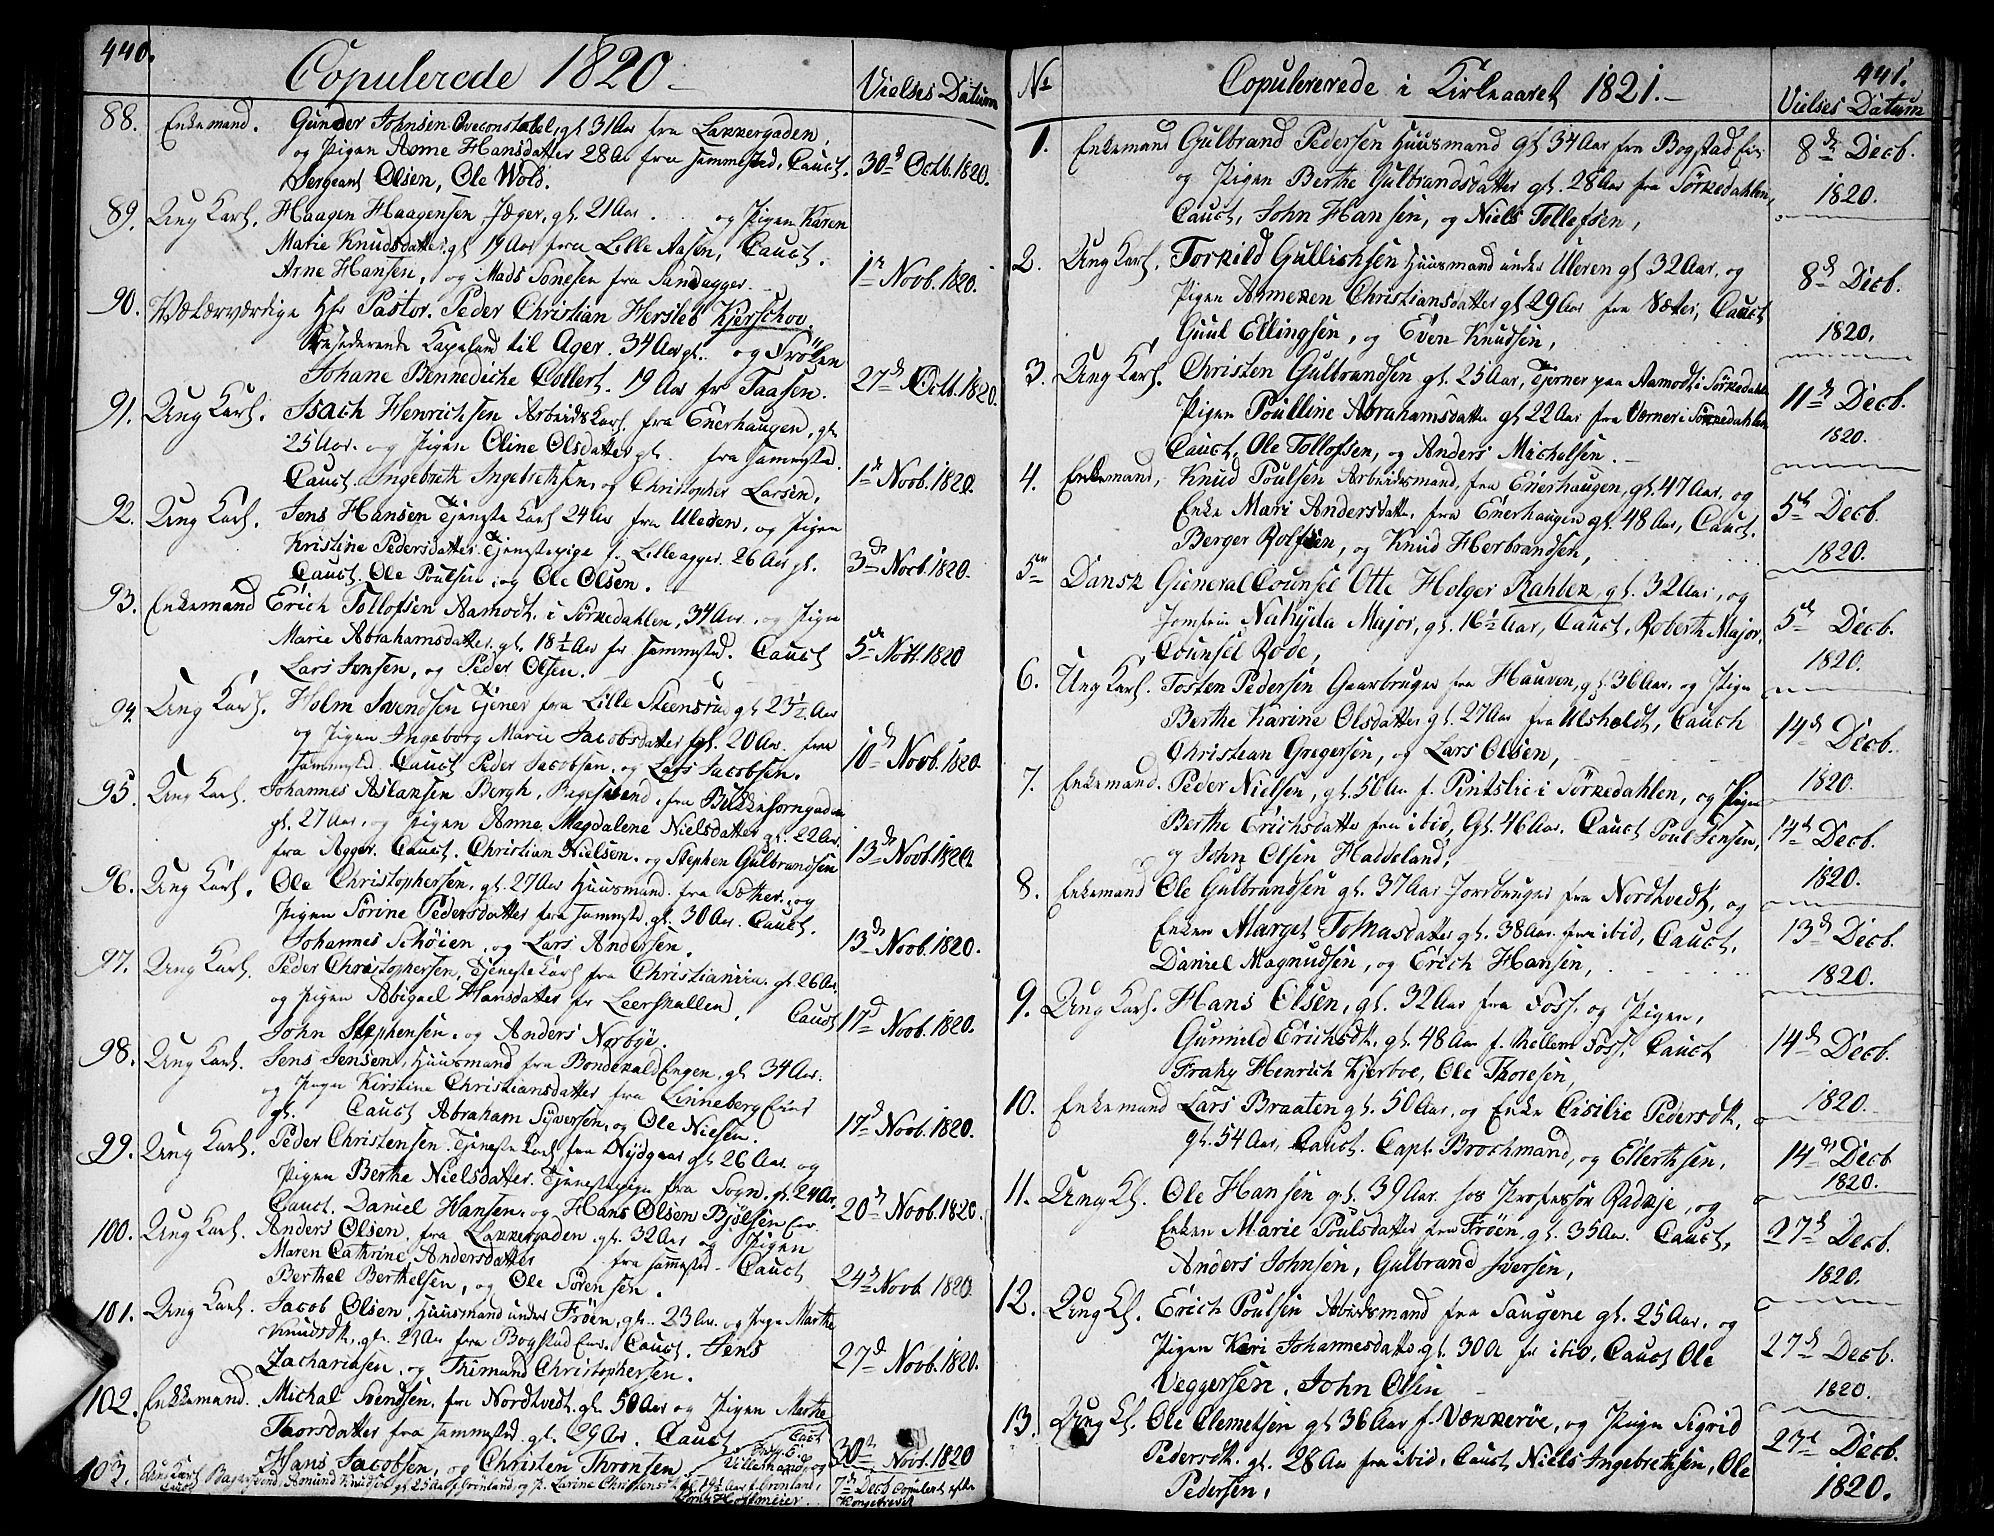 440.
Copulerede 1820.
Vielses Datum
88. Enkemand. Gunder Johnsen Oveconstabel, gl. 31 Aar fra Lakkergaden,
og Pigen Anne Hansdatter 28 A. fra sammested, Cauct.
Sergeant Olsen, Ole Wold. 30d Octb. 1820.
89. Ung Karl. Haagen Haagensen Jæger, gl. 21 Aar. og Pigen Karen
Marie Knudsdatter gl 19 Aar fra Lille Aasen, Cauct.
Arne Hansen, og Mads Sonesen fra Sandagger. 1n Novb. 1820.
90. Velærværdige Hr Pastor. Peder Christian Hersleb Kjerschov
Residerende Kapeland til Ager. 34 Aar gl. og Frölen
Johane Bennediche Collert. 19 Aar fr Taasen. 27d Octb. 1820.
91. Ung Karl. Isach Henrichsen Arbeidskarl. fra Enerhaugen, gl.
25 Aar. og Pigen Oline Olsdatter gl. fra sammested.
Cauct. Ingebreth Ingebrethsen, og Christopher Larsen. 1d Novb. 1820.
92. Ung Karl. Jens Hansen Tjeneste Karl 24 Aar fra Ulersen, og Pigen
Kristine Pedersdatter Tjenestepige i Lilleagger. 26 Aar gl.
Cauct. Ole Poulsen, og Ole Olsen. 3de Novb. 1820.
93. Enkemand Erich Tollofsen Aamodt. i Sörkedahlen, 34 Aar. og Pigen
Marie Abrahamsdatter gl. 18½ Aar fr sammested. Cauct
Lars Jensen, og Peder Olsen. 5te Novb. 1820
94. Ung Karl. Holm Svendsen Tjener fra Lille Steensrud gl 23½ Aar
og Pigen Ingeborg Marie Jacobsdatter gl. 20 Aar. fra
sammested. Cauct Peder Jacobsen, og Lars Jacobsen. 10d Novb. 1820.
95. Ung Karl. Johannes Aslansen Bergh, fra
gl. 27 Aar, og Pigen Anne Magdalene Nielsdatter gl. 22 Aar.
fra Agger. Cauct. Christian Nielsen. og Stephen Gulbrandsen 13de Novb. 1820.
96. Ung Karl. Ole Christophersen, gl. 27 Aar Huusmand. fra og
Pigen Sörine Pedersdatter fra sammested. gl. 30 Aar. Cauct.
Johannes Schöien, og Lars Andersen. 13de Novb. 1820.
97. Ung Karl. Peder Christophersen, Tjeneste Karl fra Christiania. gl. 26 Aar.
og Pigen Abigael Hansdatter fr Leerskallen. Cauct
John Stephensen, og Anders Norbye. 17d Novb. 1820.
98. Ung Karl. Jens Jensen, Huusmand fra Bondekald Engen, gl. 34 Aar.
og Pigen Kirstine Christiansdatter fra Linneberg Eier
gl. Cauct Abraham Syversen, og Ole Nielsen. 17d Novb. 1820.
99. Ung Karl. Peder Christensen Tjeneste Karl fra Nydgaar gl 26 Aar. og
Pigen Berthe Nielsdatter. Tjenestepige fra Sogn. gl. 24 Aar.
Cauct. Daniel Hansen, og Hans Olsen Bjölsen Eier. 20d Novb. 1820.
100. Ung Karl. Anders Olsen. fra Lakkergaden. gl. 32 Aar og Pigen
Maren Cathrine Andersdatter fra sammested. Cauct
Berthel Berthelsen, og Ole Sörensen. 24d Novb. 1820
101. Ung Karl. Jacob Olsen, Huusmand under Fröen, gl. 23 Aar. og Pigen Marthe
Knudsdt. gl. 23 Aar fra Bogstad Eier. Cauct. Jens
Zachariasen. og Thimand Christophersen. 27d Novb. 1820.
102. Enkemand. Michal Svendsen. fra Nordtvedt. gl. 50 Aar og Pigen Marthe
Thorsdatter fra sammested. gl. 29 Aar. Cauct
Hans Jacobsen, og Christen Thronsen. 30te Novb. 1820
103. Ung Karl Asmund Knudsen gl 25 Aar f. Grönland, og P. Larine Christensdt. gl 19½ Aar f. Grönland,
7de Decb copuleret efter
Kongebrevet
441.
No Copulererede i Kirkeaaret 1821.
Vielses Datum
1. Enkemand Gulbrand Pedersen Huusmand gl 34 Aar fra Bogstad Eier
og Pigen Berthe Gulbrandsdatter gl. 28 Aar fra Sörkedahlen,
Cauct, John Hansen, og Niels Tollefsen, 8de Decb. 1820.
2. Ung Karl. Torkild Gullichsen Huusmand under Uleren gl 32 Aar, og
Pigen Anneken Christiansdatter gl 29 Aar fra Sæter, Cauct
Guul Ellingsen, og Even Knudsen, 8de Decb. 1820.
3. Ung Karl. Christen Gulbrandsen gl. 25 Aar, Tjener paa Aamodt i Sörkedahlen
Pigen Poulline Abrahamsdatter gl 22 Aar fra Værner i Sörkedahlen
Cauct, Ole Tollofsen, og Anders Michelsen. 11te Decb. 1820.
4. Enkemand, Knud Poulsen Arbeidsmand, fra Enerhaugen, gl. 47 Aar, og
Enke Mari Andersdatter, fra Enerhaugen gl. 48 Aar, Cauct.
Berger Rolfsen, og Knud Herbrandsen, 5te Decb. 1820.
5te Dansk General Counsel Otte Holger Rahbek gl. 32 Aar, og
Jomfrue Nakyda Major, gl. 16½ Aar, Cauct, Roberth Major,
Counsel Rode, 5te Decb. 1820.
6. Ung Karl. Tosten Pedersen Gaarbruger fra Hauven, gl. 36 Aar. og Pigen
Berthe Karine Olsdatter gl. 27 Aar fra Ulsholdt, Cauct
Christian Gregersen, og Lars Olsen, 14d Decb. 1820.
7. Enkemand. Peder Nielsen, gl. 50 Aar f. Pintslie i Sörkedahlen, og Pigen
Berthe Erichsdatter fra ibid, gl. 46 Aar. Cauct Poul Jensen,
og John Olsen Haddeland, 14d Decb. 1820.
8. Enkemand Ole Gulbrandsen gl. 37 Aar Jordbruger fra Nordtvedt, og
Enken Marget Tomasdatter gl. 38 Aar. fra ibid, Cauct,
Daniel Magnudsen, og Erich Hansen, 13d Decb. 1820.
9. Ung Karl. Hans Elsen, gl. 32 Aar fra Foss. og Pigen,
Gunnild Erichsdt. gl. 48 Aar f. Mellem Foss. Cauct
Henrich Kjerboe, Ole Thoresen, 14d Decb. 1820.
10. Enkemand Lars Braaten gl. 50 Aar, og Enke Cisilie Pedersdt.
gl. 54 Aar, Cauct. Capt. Brochmand, og Ellerthsen, 14de Decb 1820.
11. Ung Kl. Ole Hansen gl. 39 Aar. hos Professor Radkje, og
Enken Marie Poulsdatter fra Fröen, gl. 35 Aar. Cauct,
Anders Johnsen, Gulbrand Iversen, 27d Decb. 1820.
12. Ung Kl. Erich Poulsen Arbeidsmand fra Saugene gl. 25 Aar, og
Pigen Kari Johannesdatter gl. 30 A fr ibid, Cauct Ole
Veggersen, John Olsen 27d Decb. 1820.
13. Ung Kl. Ole Clemetsen gl 36 Aar f. Vækkeröe, og Pigen Sigrid
Pedersdt. gl. 28 Aar fra ibid, Cauct Niels Ingebrethsen, Ole
Pedersen, 27d Decb. 1820.